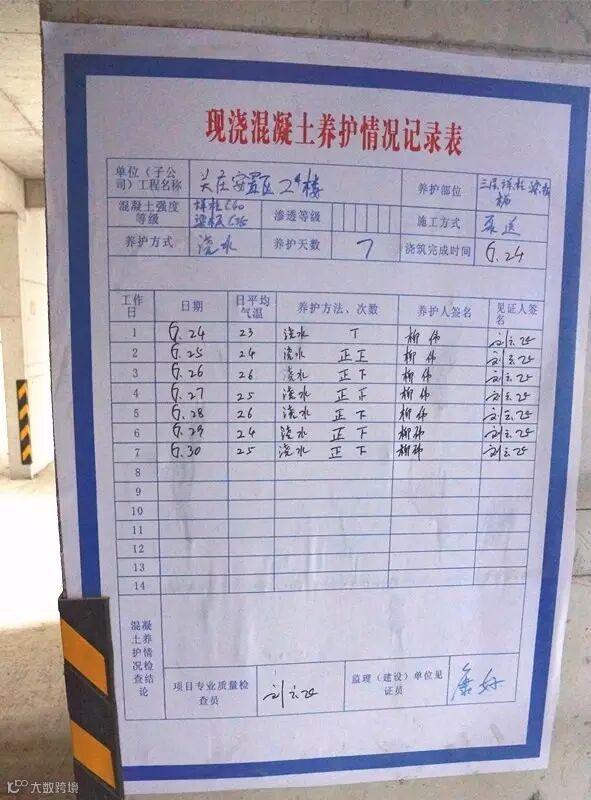 现浇混凝土养护情况记录表
单位(子公司)工程名称 关庄安置区2#楼 养护部位
混凝土强度等级 C60 渗透等级 施工方式 泵送
养护方式 浇水 养护天数 7 浇筑完成时间 6.24
工作日 日期 日平均气温 养护方法、次数 养护人签名 见证人签名
1 6.24 23 浇水 T 柳伟
2 6.25 24 浇水 正正 柳伟
3 6.26 26 浇水 正下 柳伟
4 6.27 25 浇水 正下 柳伟
5 6.28 26 浇水 正下 柳伟
6 6.29 24 浇水 正下 柳伟
7 6.30 25 浇水 正下 柳伟
8
9
10
11
12
13
14
混凝土养护情况检查结论
项目专业质量检查员 监理(建设)单位见证员
大数跨境